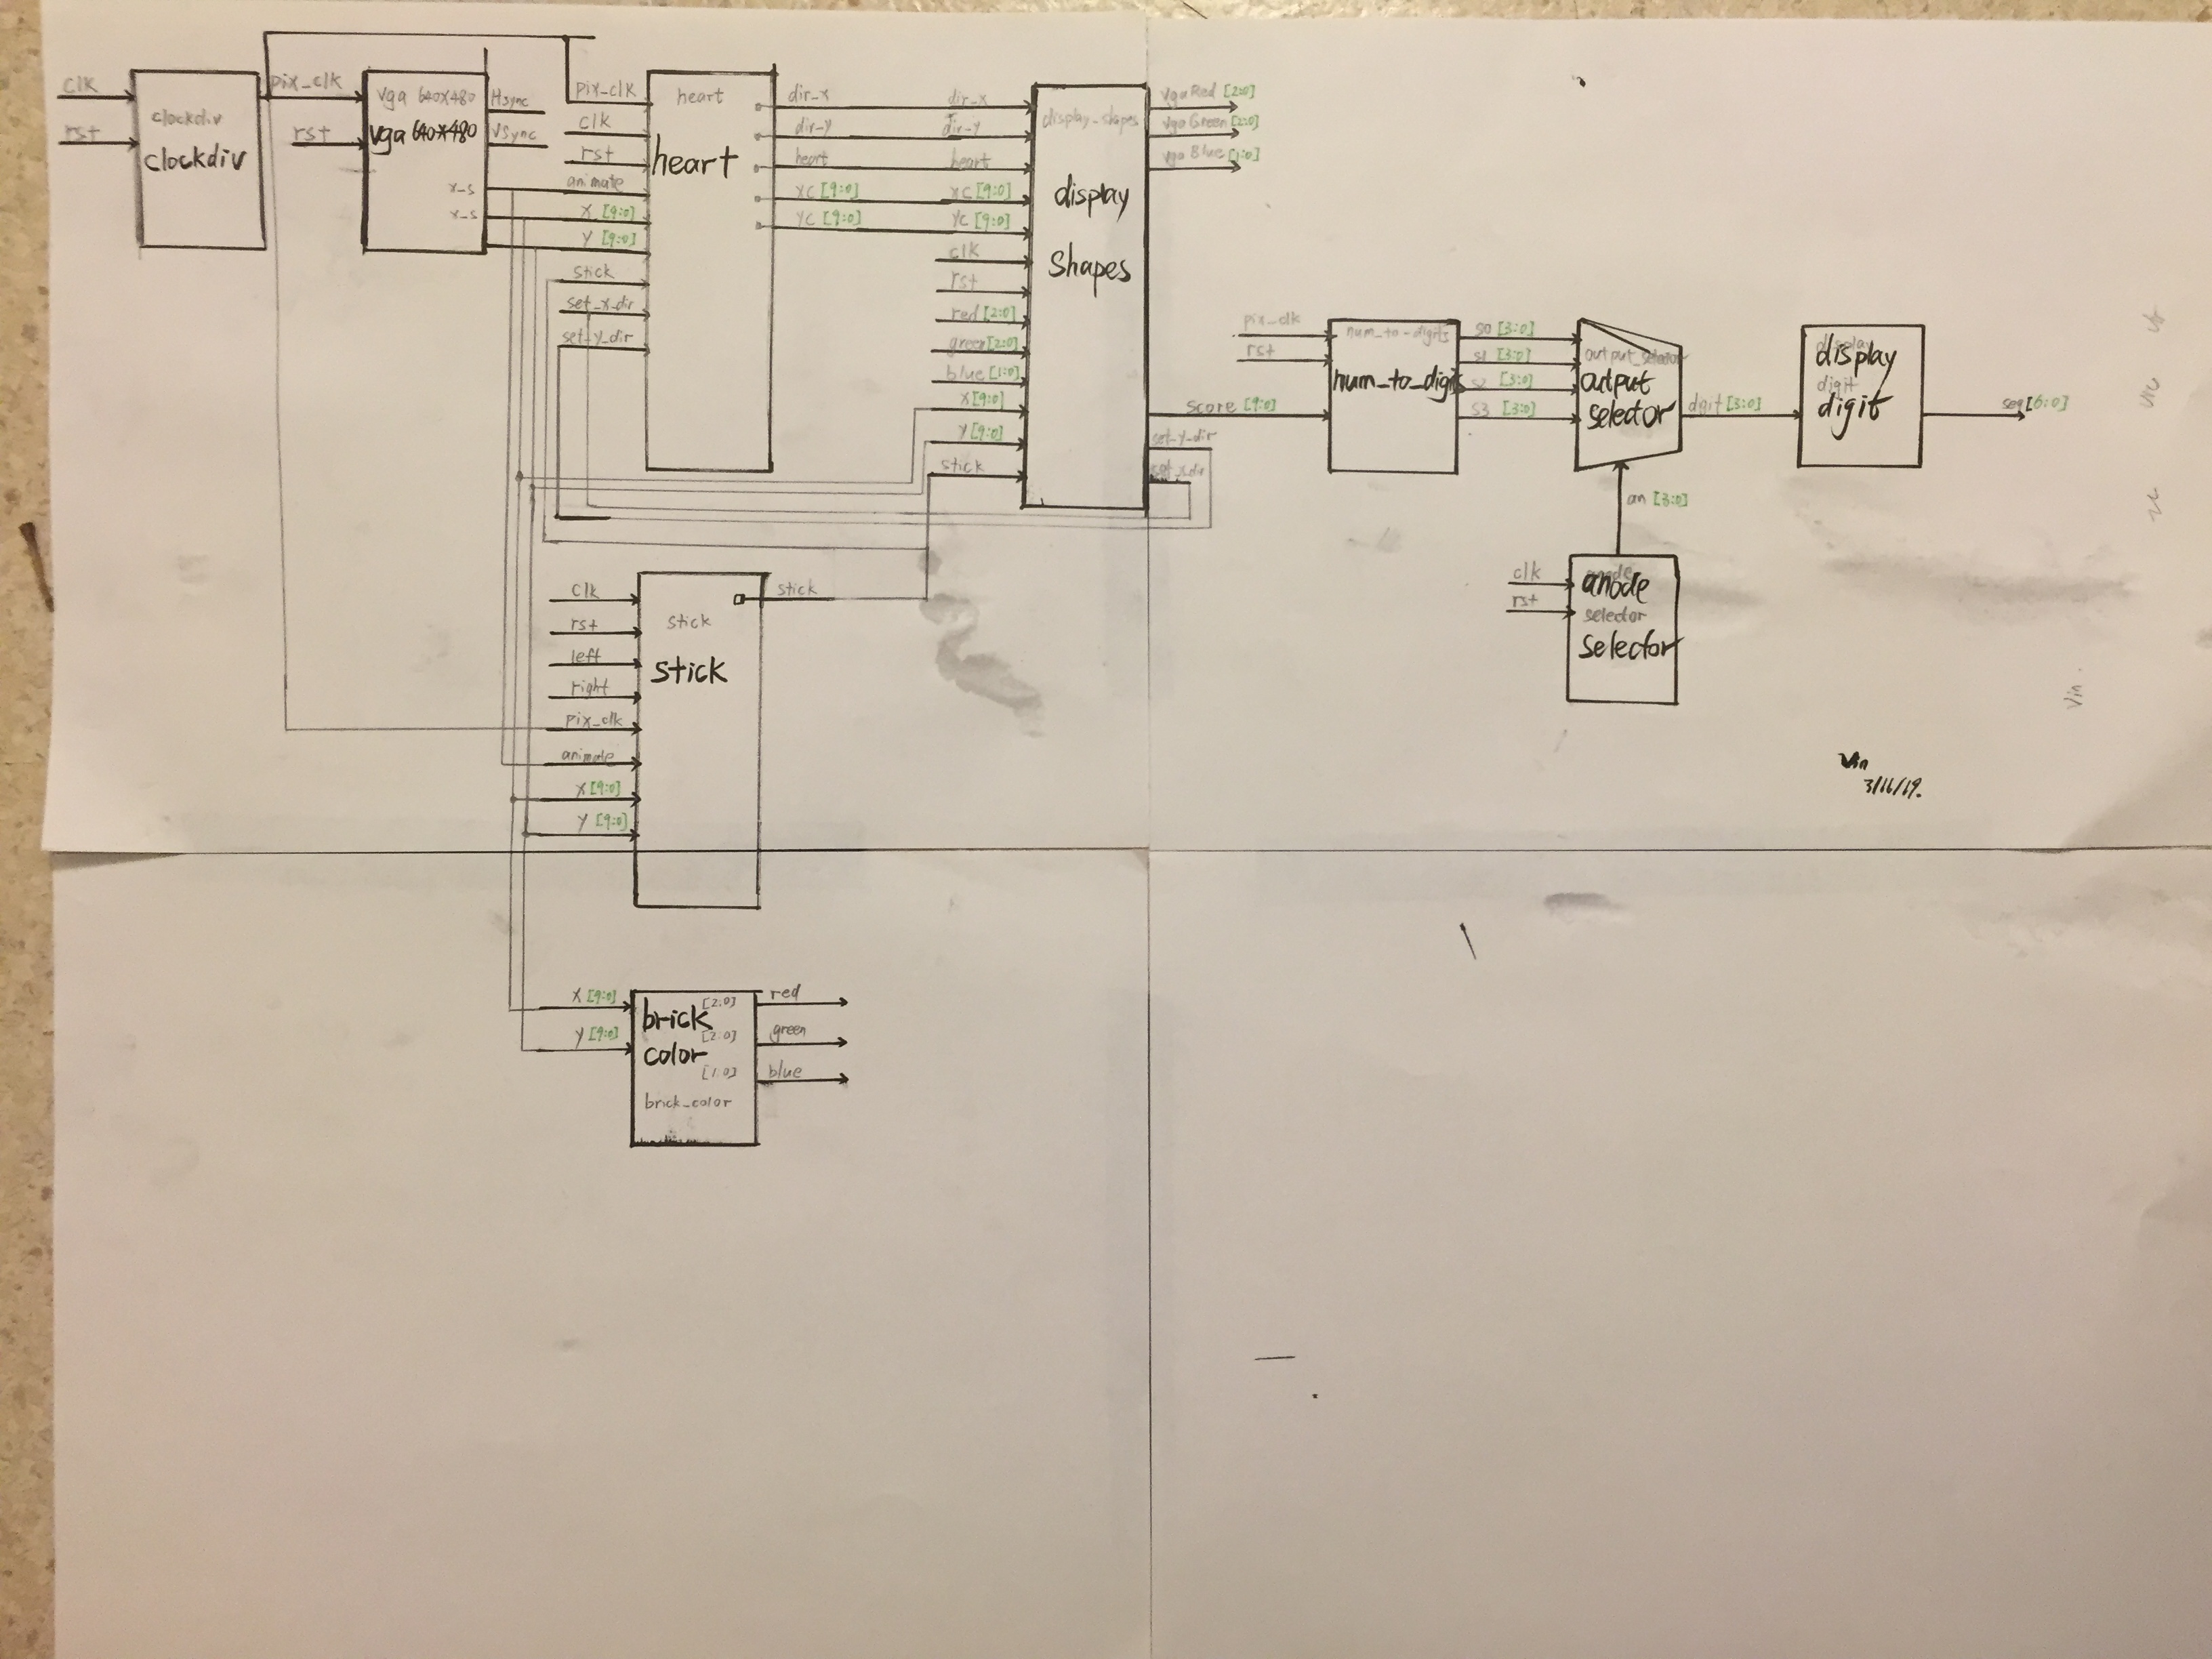 clk
rst
clockdiv
clockdiv
pix_clk
rst
vga 640x480
vga 640x480
Hsync
VSync
x_s
x_s
pix_clk
clk
rst
animate
X [9:0]
Y [9:0]
stick
set_x_dir
set_y_dir
heart
heart
dir_x
dir_y
heart
XC [9:0]
YC [9:0]
dir_x
dir_y
heart
XC [9:0]
YC [9:0]
clk
rst
red [2:0]
green [2:0]
blue [1:0]
X [9:0]
Y [9:0]
stick
display_shapes
display
Shapes
vga Red [2:0]
vga Green [2:0]
vga Blue [1:0]
score [9:0]
set_y_dir
set_x_dir
pix_clk
rst
num_to_digits
num_to_digits
S0 [3:0]
S1 [3:0]
S2 [3:0]
S3 [3:0]
output_selector
output
selector
dgit [3:0]
display
display
digit
digit
seg [6:0]
an [3:0]
clk
rst
anode
anode
selector
selector
Vin
Vin
3/16/19.
clk
rst
left
right
pix_clk
animate
X [9:0]
Y [9:0]
stick
stick
stick
X [9:0]
Y [9:0]
brick
color
[2:0]
[2:0]
[1:0]
brick_color
red
green
blue